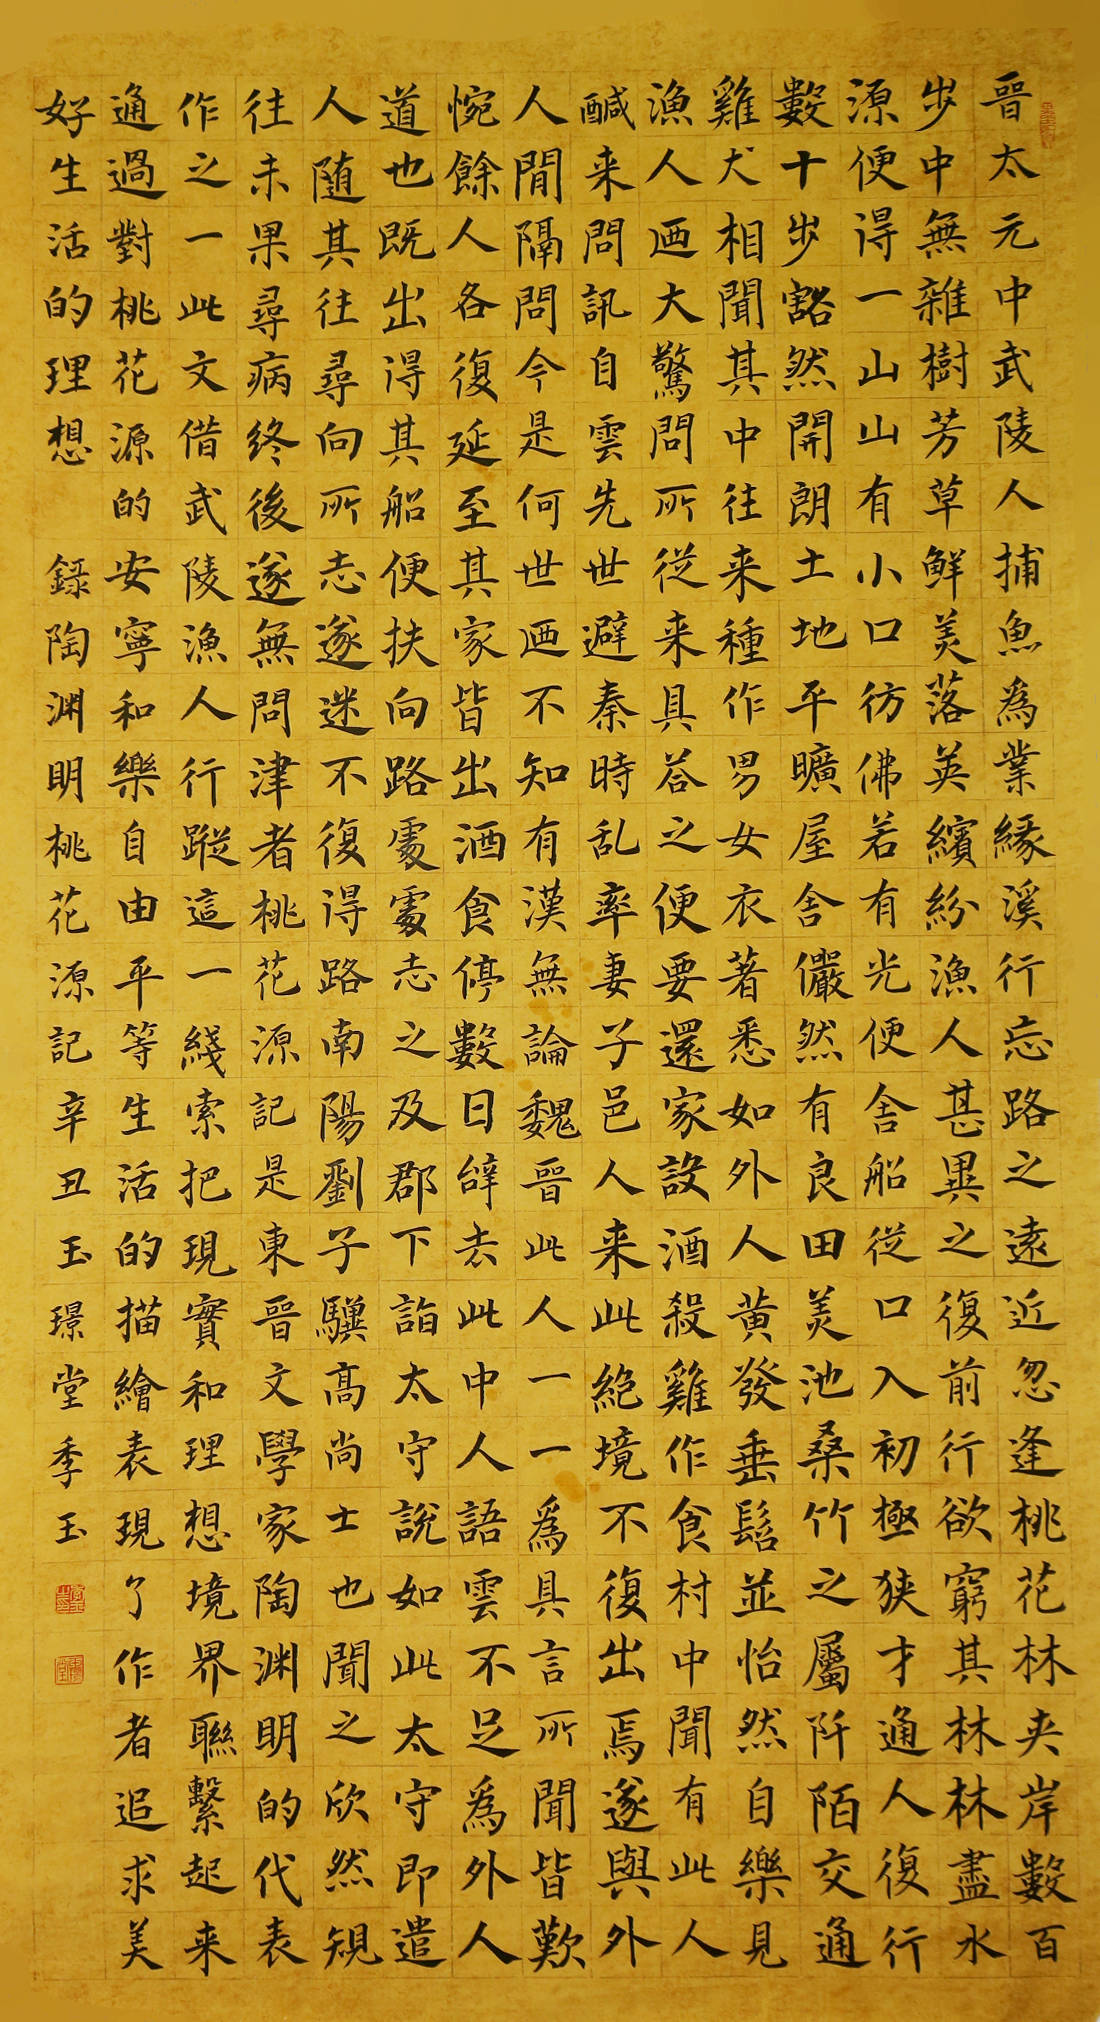 晉太元中武陵人捕魚為業緣溪行忘路之遠近忽逢桃花林夾岸數百
步中無雜樹芳草鮮美落英繽紛漁人甚異之復前行欲窮其林林盡水
源便得一山山有小口彷佛若有光便舍船從口入初極狹才通人復行
數十步豁然開朗土地平曠屋舍儼然有良田美池桑竹之屬阡陌交通
雞犬相聞其中往来種作男女衣著悉如外人黃發垂髫並怡然自樂見
漁人迺大驚問所從来具荅之便要還家設酒殺雞作食村中聞有此人
醎来問訊自雲先世避秦時乱率妻子邑人来此絕境不復出焉遂與外
人間隔問今是何世迺不知有漢無論魏晉此人一一為具言所聞皆歎
惋餘人各復延至其家皆出酒食停數日辭去此中人語雲不足為外人
道也既出得其船便扶向路處處志之及郡下詣太守說如此太守即遣
人随其往尋向所志遂迷不復得路南陽劉子驥高尚士也聞之欣然規
往未果尋病終後遂無問津者桃花源記是東晉文學家陶渊明的代表
作之一此文借武陵漁人行蹤這一綫索把現實和理想境界聯繫起来
通過對桃花源的安寧和樂自由平等生活的描繪表現了作者追求美
好生活的理想 錄陶渊明桃花源記辛丑玉璟堂季玉